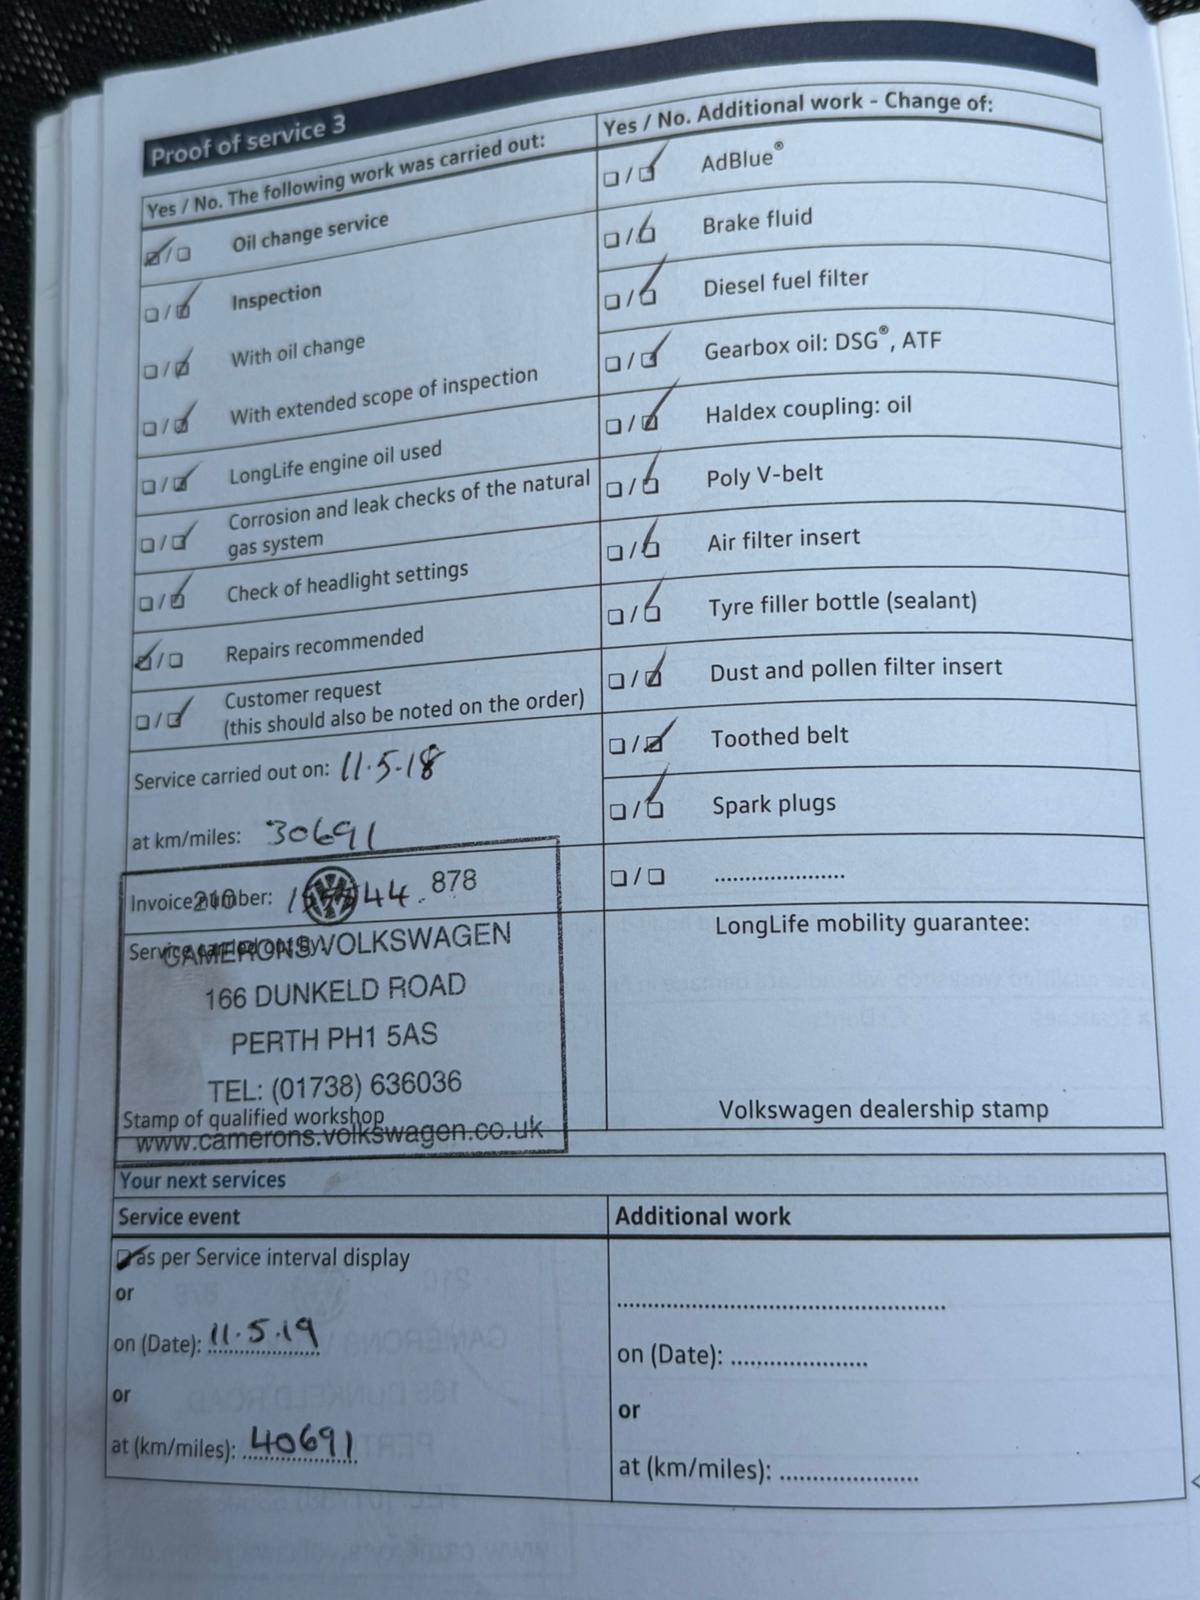 Proof of service 3
Yes / No. The following work was carried out:
Oil change service
Inspection
With oil change
With extended scope of inspection
LongLife engine oil used
Corrosion and leak checks of the natural
gas system
Check of headlight settings
Repairs recommended
Customer request
(this should also be noted on the order)
Service carried out on: 11.5.18
at km/miles: 30691
Invoice number:
210
44
878
Service carried out by:
CAMERONS VOLKSWAGEN
166 DUNKELD ROAD
PERTH PH1 5AS
TEL: (01738) 636036
Stamp of qualified workshop
www.camerons.volkswagen.co.uk
Yes / No. Additional work - Change of:
AdBlue®
Brake fluid
Diesel fuel filter
Gearbox oil: DSG®, ATF
Haldex coupling: oil
Poly V-belt
Air filter insert
Tyre filler bottle (sealant)
Dust and pollen filter insert
Toothed belt
Spark plugs
.....................
LongLife mobility guarantee:
Volkswagen dealership stamp
Your next services
Service event
as per Service interval display
or
on (Date): 11.5.19
or
at (km/miles): 40691
Additional work
on (Date): ......................
or
at (km/miles): ......................